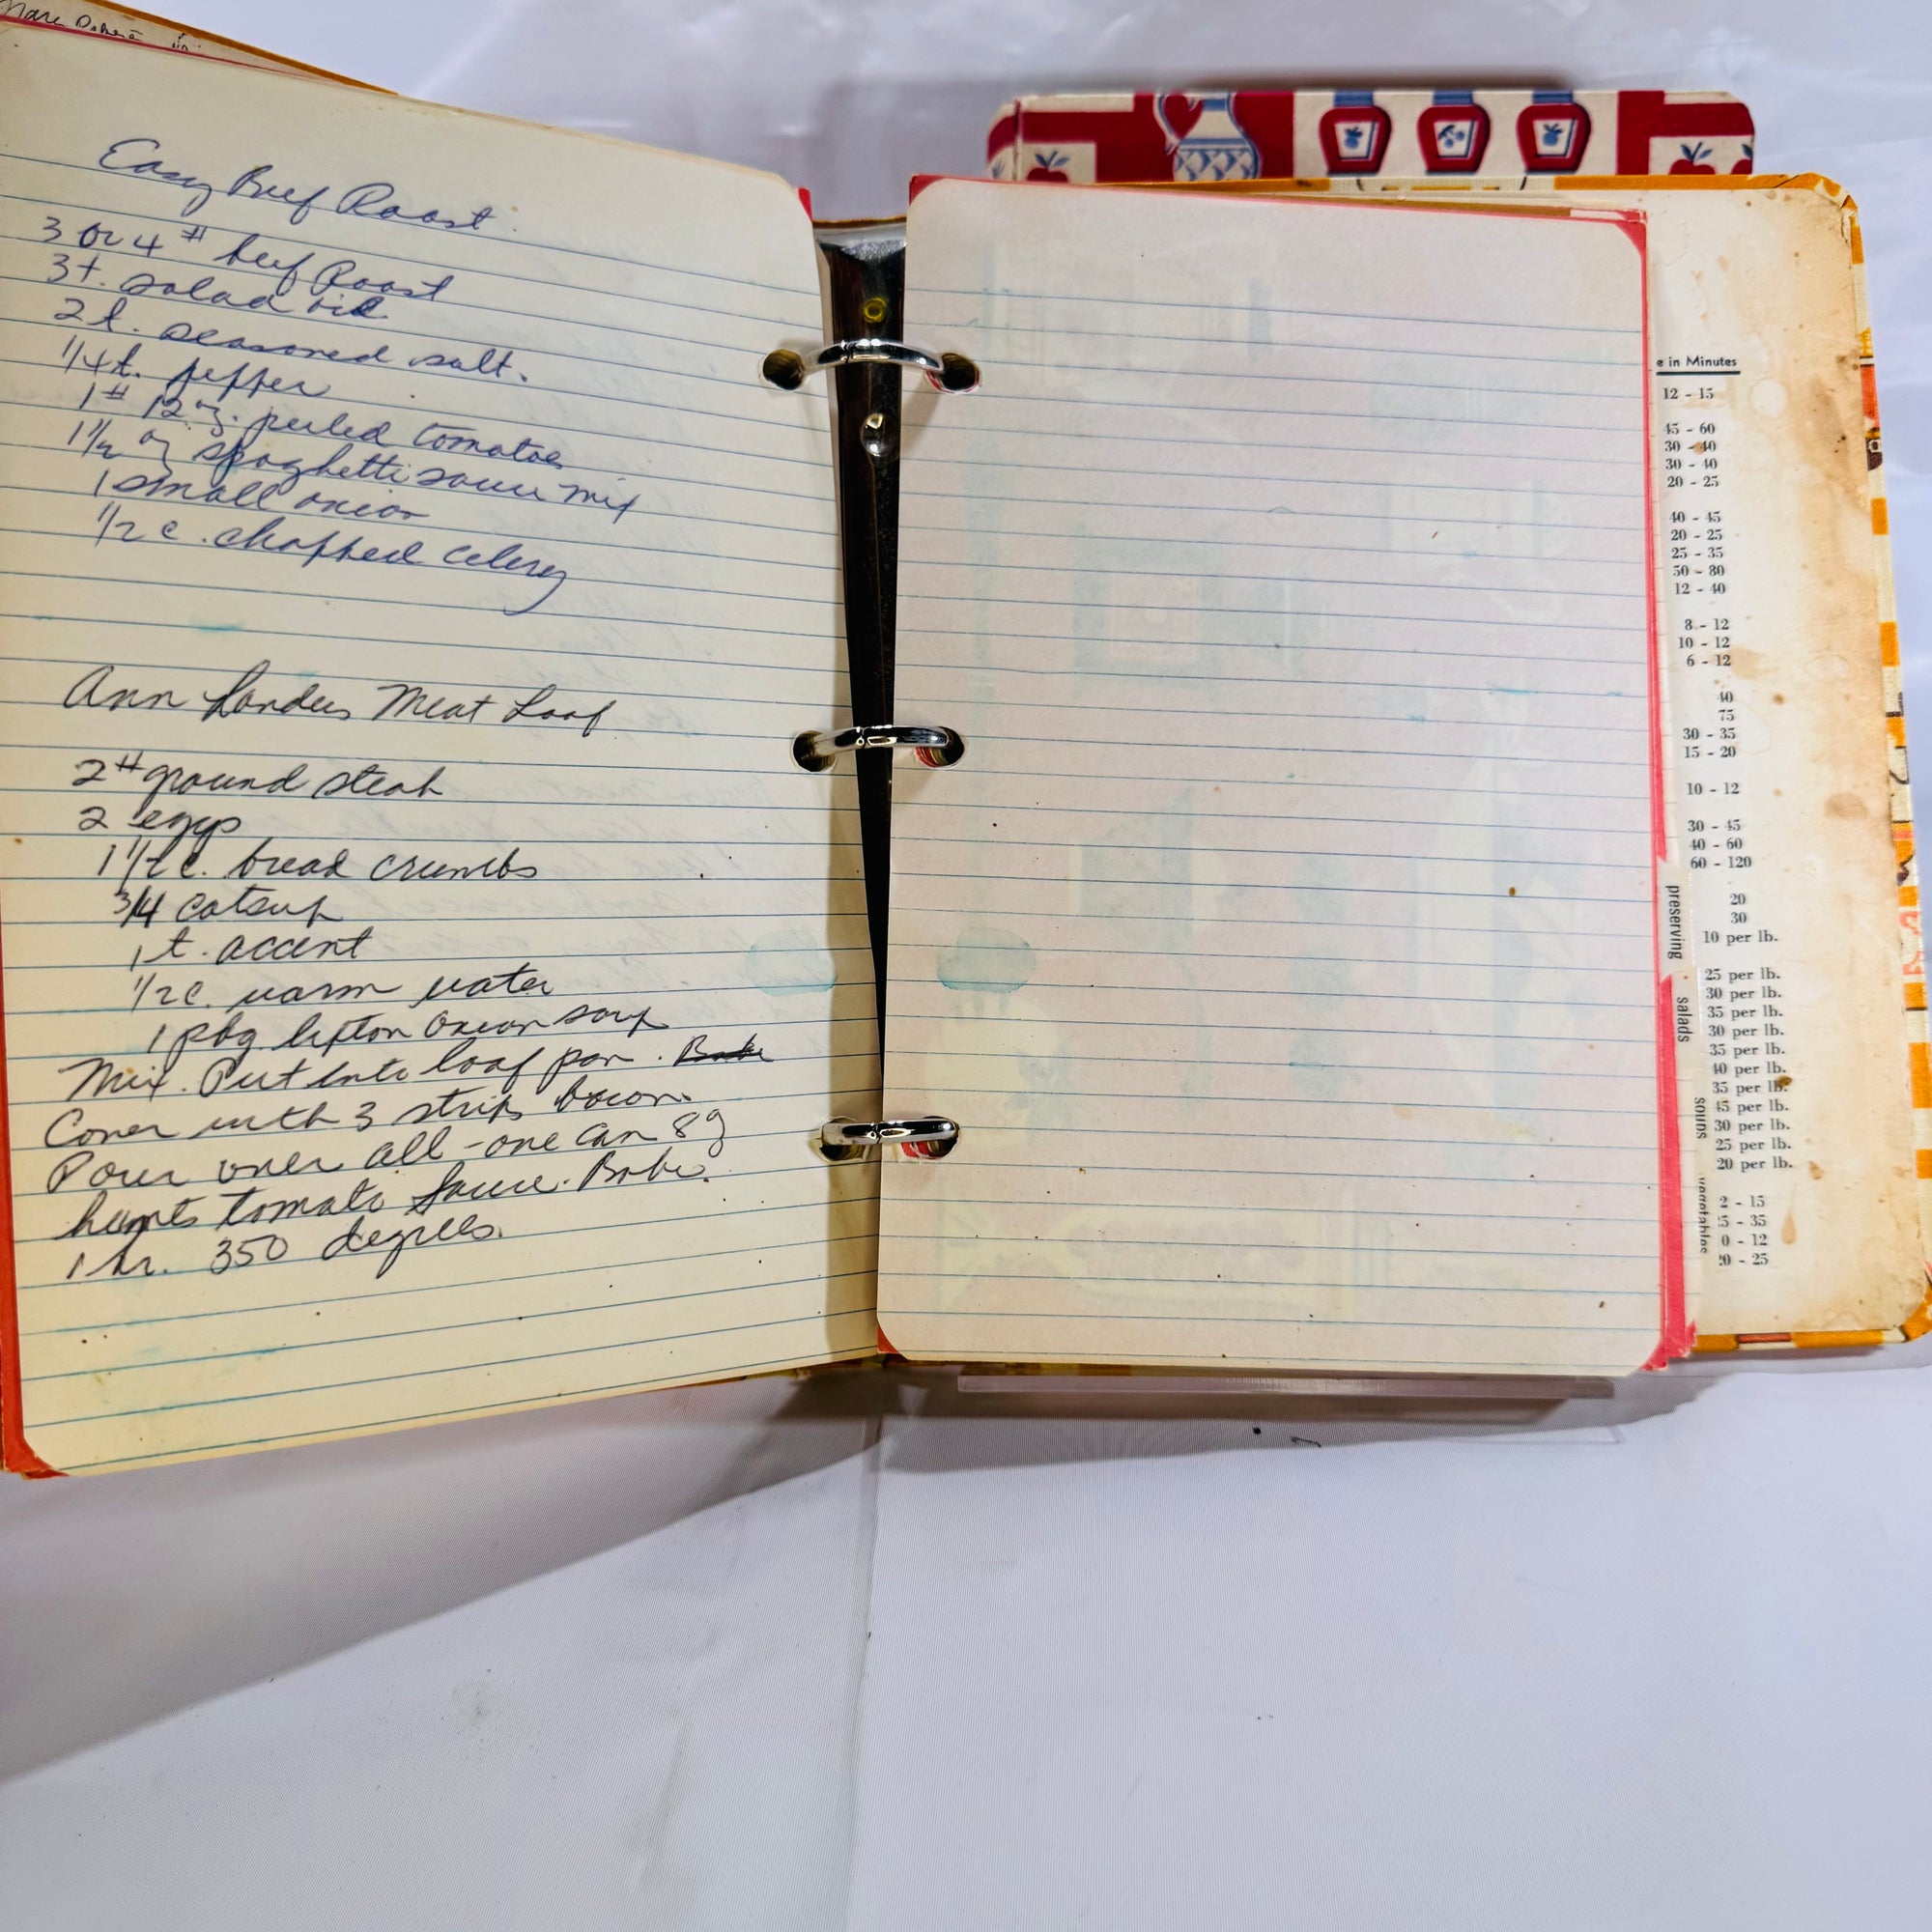 Easy Beef Roast
3 or 4 # beef Roast
3 t. salad oil
2 t. seasoned salt.
1/4 t. pepper
1 # 12 oz. peeled tomatoes
1 1/2 oz spaghetti sauce mix
1 small onion
1/2 c. chopped celery
Ann Landers Meat Loaf
2 # ground steak
2 eggs
1 1/2 c. bread crumbs
3/4 catsup
1 t. accent
1/2 c. warm water
1 pkg. lipton onion soup
Mix. Put into loaf pan. Bake
Cover with 3 strips bacon.
Pour over all - one can 8 oz
hunts tomato sauce. Bake.
1 hr. 350 degrees.
e in Minutes
12 - 15
45 - 60
30 - 40
30 - 40
20 - 25
40 - 45
20 - 25
25 - 35
50 - 80
12 - 40
8 - 12
10 - 12
6 - 12
40
75
30 - 35
15 - 20
10 - 12
30 - 45
40 - 60
60 - 120
20
30
10 per lb.
25 per lb.
30 per lb.
35 per lb.
30 per lb.
35 per lb.
40 per lb.
35 per lb.
45 per lb.
30 per lb.
25 per lb.
20 per lb.
2 - 15
5 - 35
0 - 12
20 - 25
preserving
salads
soups
vegetables